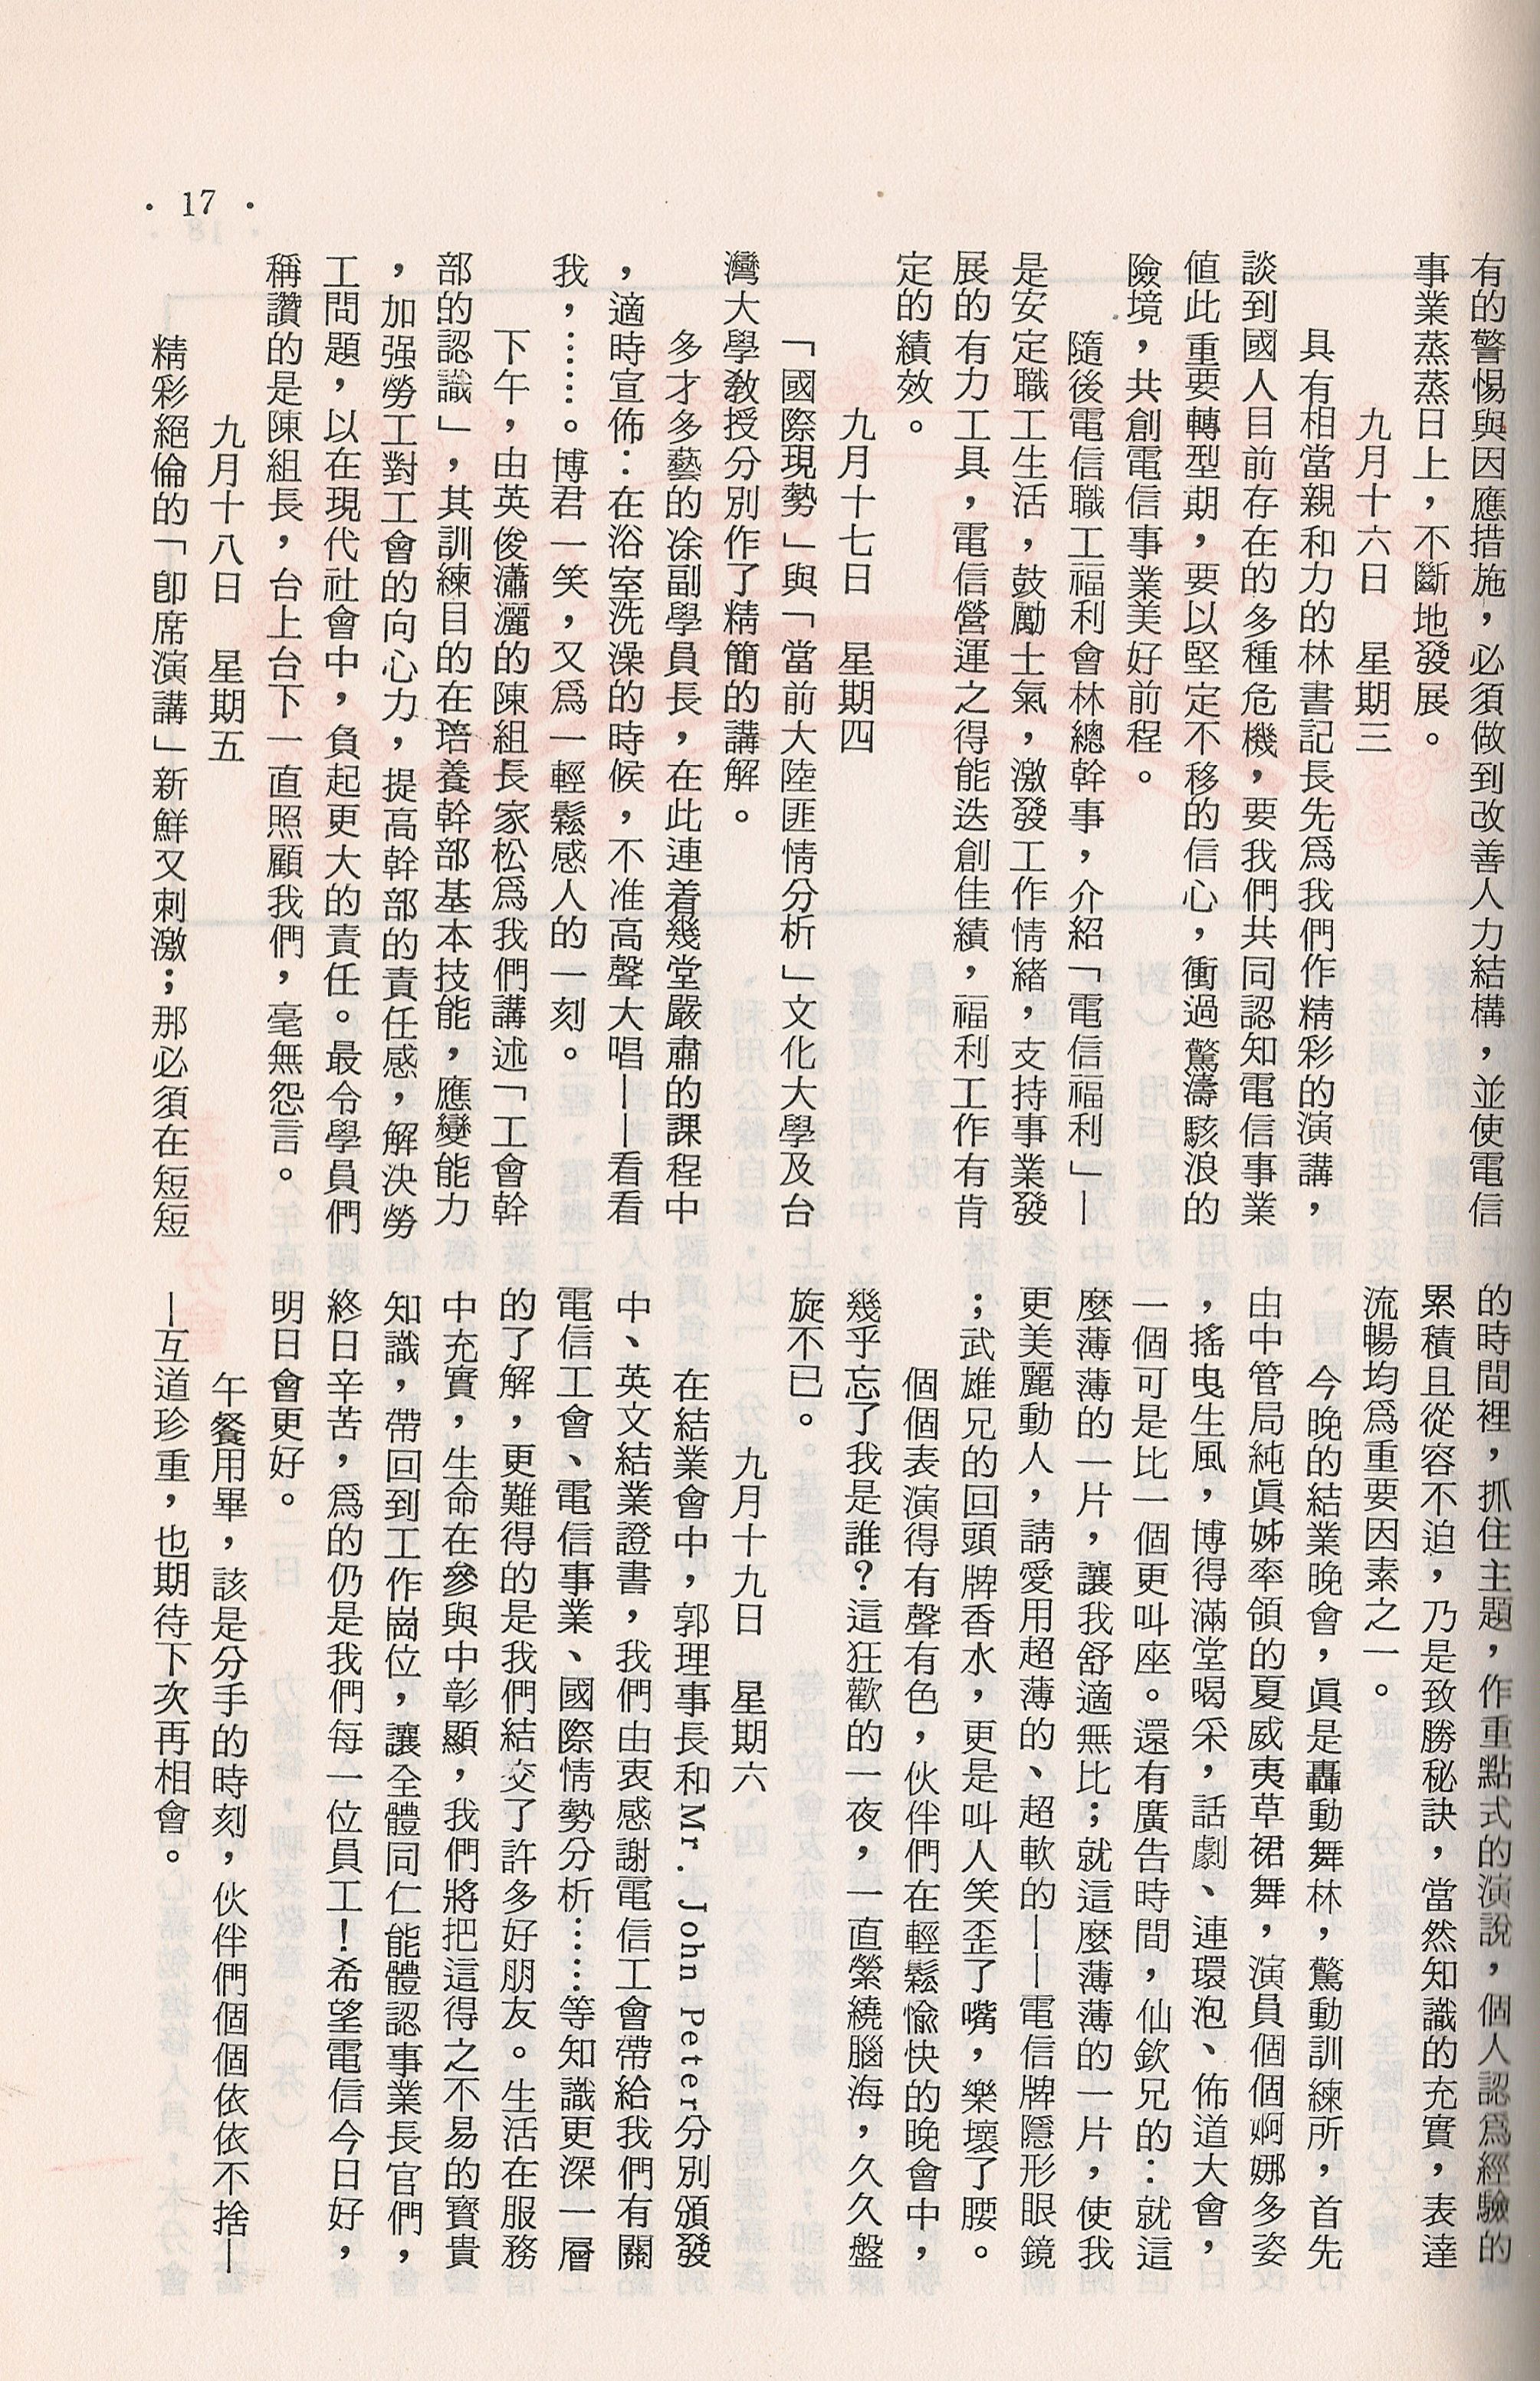 · 17 ·
有的警惕與因應措施，必須做到改善人力結構，並使電信
事業蒸蒸日上，不斷地發展。
九月十六日　星期三
具有相當親和力的林書記長先爲我們作精彩的演講，
談到國人目前存在的多種危機，要我們共同認知電信事業
值此重要轉型期，要以堅定不移的信心，衝過驚濤駭浪的
險境，共創電信事業美好前程。
隨後電信職工福利會林總幹事，介紹「電信福利」—
是安定職工生活，鼓勵士氣，激發工作情緒，支持事業發
展的有力工具，電信營運之得能迭創佳績，福利工作有肯
定的績效。
九月十七日　星期四
「國際現勢」與「當前大陸匪情分析」文化大學及台
灣大學敎授分別作了精簡的講解。
多才多藝的凃副學員長，在此連着幾堂嚴肅的課程中
，適時宣佈：在浴室洗澡的時候，不准高聲大唱——看看
我，……。博君一笑，又爲一輕鬆感人的一刻。
下午，由英俊瀟灑的陳組長家松爲我們講述「工會幹
部的認識」，其訓練目的在培養幹部基本技能，應變能力
，加强勞工對工會的向心力，提高幹部的責任感，解決勞
工問題，以在現代社會中，負起更大的責任。最令學員們
稱讚的是陳組長，台上台下一直照顧我們，毫無怨言。
九月十八日　星期五
精彩絕倫的「卽席演講」新鮮又刺激；那必須在短短
的時間裡，抓住主題，作重點式的演說，個人認爲經驗的
累積且從容不迫，乃是致勝秘訣，當然知識的充實，表達
流暢均爲重要因素之一。
今晚的結業晚會，眞是轟動舞林，驚動訓練所，首先
由中管局純眞姊率領的夏威夷草裙舞，演員個個婀娜多姿
，搖曳生風，博得滿堂喝采，話劇、連環泡、佈道大會，
一個可是比一個更叫座。還有廣告時間，仙欽兄的：就這
麼薄薄的一片，讓我舒適無比；就這麼薄薄的一片，使我
更美麗動人，請愛用超薄的、超軟的——電信牌隱形眼鏡
；武雄兄的回頭牌香水，更是叫人笑歪了嘴，樂壞了腰。
個個表演得有聲有色，伙伴們在輕鬆愉快的晚會中，
幾乎忘了我是誰？這狂歡的一夜，一直縈繞腦海，久久盤
旋不已。
九月十九日　星期六
在結業會中，郭理事長和Mr. John Peter分別頒發
中、英文結業證書，我們由衷感謝電信工會帶給我們有關
電信工會、電信事業、國際情勢分析……等知識更深一層
的了解，更難得的是我們結交了許多好朋友。生活在服務
中充實，生命在參與中彰顯，我們將把這得之不易的寳貴
知識，帶回到工作崗位，讓全體同仁能體認事業長官們，
終日辛苦，爲的仍是我們每一位員工！希望電信今日好，
明日會更好。
午餐用畢，該是分手的時刻，伙伴們個個依依不捨—
—互道珍重，也期待下次再相會。